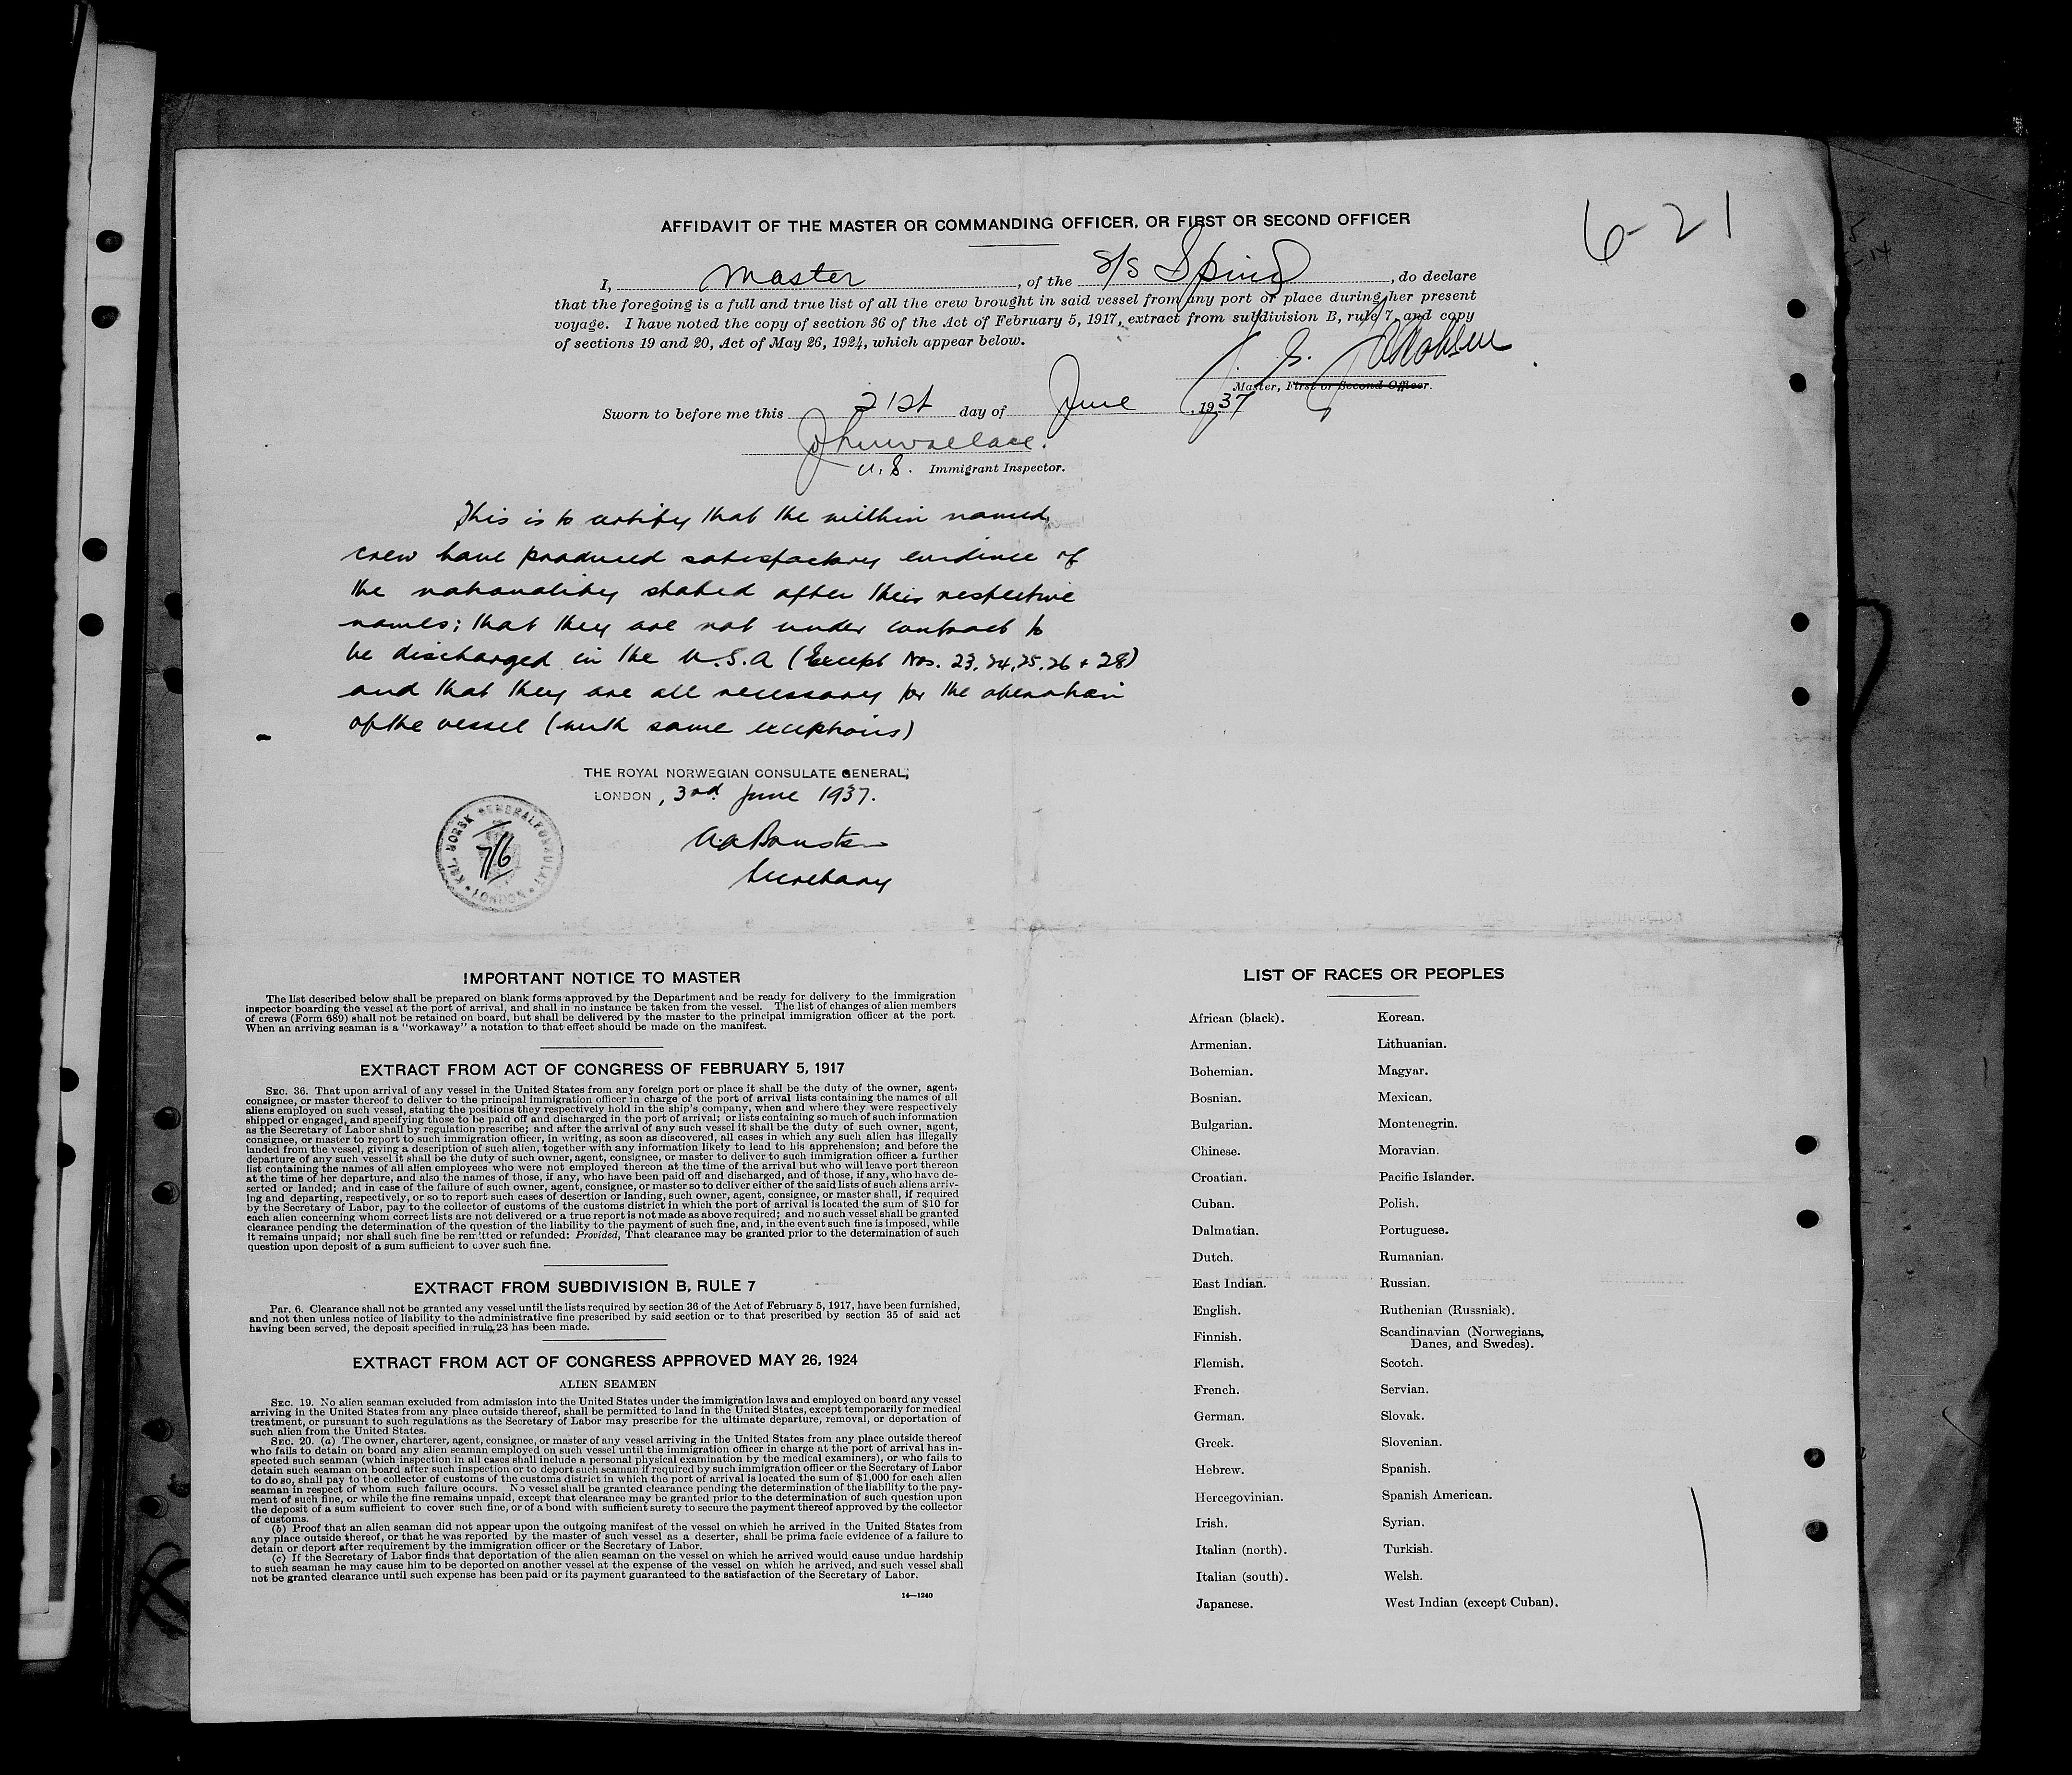 6-21
AFFIDAVIT OF THE MASTER OR COMMANDING OFFICER, OR FIRST OR SECOND OFFICER
I, Master, of the S/S Spind, do declare
that the foregoing is a full and true list of all the crew brought in said vessel from any port or place during her present
voyage. I have noted the copy of section 36 of the Act of February 5, 1917, extract from subdivision B, rule 7, and copy
of sections 19 and 20, Act of May 26, 1924, which appear below.
Master, First or Second Officer.
Sworn to before me this 21st day of June, 1937
U.S. Immigrant Inspector.
This is to certify that the within named
crew have produced satisfactory evidence of
the nationality stated after their respective
names; that they are not under contract to
be discharged in the U.S.A (Except Nos. 23, 24, 25, 26 + 28)
and that they are all necessary for the operation
of the vessel (with same exceptions)
THE ROYAL NORWEGIAN CONSULATE GENERAL,
LONDON, 3rd June 1937.
Secretary
KGL. NORSK GENERALKONSULAT · LONDON ·
IMPORTANT NOTICE TO MASTER
The list described below shall be prepared on blank forms approved by the Department and be ready for delivery to the immigration
inspector boarding the vessel at the port of arrival, and shall in no instance be taken from the vessel. The list of changes of alien members
of crews (Form 689) shall not be retained on board, but shall be delivered by the master to the principal immigration officer at the port.
When an arriving seaman is a "workaway" a notation to that effect should be made on the manifest.
EXTRACT FROM ACT OF CONGRESS OF FEBRUARY 5, 1917
SEC. 36. That upon arrival of any vessel in the United States from any foreign port or place it shall be the duty of the owner, agent,
consignee, or master thereof to deliver to the principal immigration officer in charge of the port of arrival lists containing the names of all
aliens employed on such vessel, stating the positions they respectively hold in the ship's company, when and where they were respectively
shipped or engaged, and specifying those to be paid off and discharged in the port of arrival; or lists containing so much of such information
as the Secretary of Labor shall by regulation prescribe; and after the arrival of any such vessel it shall be the duty of such owner, agent,
consignee, or master to report to such immigration officer, in writing, as soon as discovered, all cases in which any such alien has illegally
landed from the vessel, giving a description of such alien, together with any information likely to lead to his apprehension; and before the
departure of any such vessel it shall be the duty of such owner, agent, consignee, or master to deliver to such immigration officer a further
list containing the names of all alien employees who were not employed thereon at the time of the arrival but who will leave port thereon
at the time of her departure, and also the names of those, if any, who have been paid off and discharged, and of those, if any, who have de-
serted or landed; and in case of the failure of such owner, agent, consignee, or master so to deliver either of the said lists of such aliens arriv-
ing and departing, respectively, or so to report such cases of desertion or landing, such owner, agent, consignee, or master shall, if required
by the Secretary of Labor, pay to the collector of customs of the customs district in which the port of arrival is located the sum of $10 for
each alien concerning whom correct lists are not delivered or a true report is not made as above required; and no such vessel shall be granted
clearance pending the determination of the question of the liability to the payment of such fine, and, in the event such fine is imposed, while
it remains unpaid; nor shall such fine be remitted or refunded: Provided, That clearance may be granted prior to the determination of such
question upon deposit of a sum sufficient to cover such fine.
EXTRACT FROM SUBDIVISION B, RULE 7
Par. 6. Clearance shall not be granted any vessel until the lists required by section 36 of the Act of February 5, 1917, have been furnished,
and not then unless notice of liability to the administrative fine prescribed by said section or to that prescribed by section 35 of said act
having been served, the deposit specified in rule 23 has been made.
EXTRACT FROM ACT OF CONGRESS APPROVED MAY 26, 1924
ALIEN SEAMEN
SEC. 19. No alien seaman excluded from admission into the United States under the immigration laws and employed on board any vessel
arriving in the United States from any place outside thereof, shall be permitted to land in the United States, except temporarily for medical
treatment, or pursuant to such regulations as the Secretary of Labor may prescribe for the ultimate departure, removal, or deportation of
such alien from the United States.
SEC. 20. (a) The owner, charterer, agent, consignee, or master of any vessel arriving in the United States from any place outside thereof
who fails to detain on board any alien seaman employed on such vessel until the immigration officer in charge at the port of arrival has in-
spected such seaman (which inspection in all cases shall include a personal physical examination by the medical examiners), or who fails to
detain such seaman on board after such inspection or to deport such seaman if required by such immigration officer or the Secretary of Labor
to do so, shall pay to the collector of customs of the customs district in which the port of arrival is located the sum of $1,000 for each alien
seaman in respect of whom such failure occurs. No vessel shall be granted clearance pending the determination of the liability to the pay-
ment of such fine, or while the fine remains unpaid, except that clearance may be granted prior to the determination of such question upon
the deposit of a sum sufficient to cover such fine, or of a bond with sufficient surety to secure the payment thereof approved by the collector
of customs.
(b) Proof that an alien seaman did not appear upon the outgoing manifest of the vessel on which he arrived in the United States from
any place outside thereof, or that he was reported by the master of such vessel as a deserter, shall be prima facie evidence of a failure to
detain or deport after requirement by the immigration officer or the Secretary of Labor.
(c) If the Secretary of Labor finds that deportation of the alien seaman on the vessel on which he arrived would cause undue hardship
to such seaman he may cause him to be deported on another vessel at the expense of the vessel on which he arrived, and such vessel shall
not be granted clearance until such expense has been paid or its payment guaranteed to the satisfaction of the Secretary of Labor.
14—1240
LIST OF RACES OR PEOPLES
African (black).
Armenian.
Bohemian.
Bosnian.
Bulgarian.
Chinese.
Croatian.
Cuban.
Dalmatian.
Dutch.
East Indian.
English.
Finnish.
Flemish.
French.
German.
Greek.
Hebrew.
Hercegovinian.
Irish.
Italian (north).
Italian (south).
Japanese.
Korean.
Lithuanian.
Magyar.
Mexican.
Montenegrin.
Moravian.
Pacific Islander.
Polish.
Portuguese.
Rumanian.
Russian.
Ruthenian (Russniak).
Scandinavian (Norwegians,
Danes, and Swedes).
Scotch.
Servian.
Slovak.
Slovenian.
Spanish.
Spanish American.
Syrian.
Turkish.
Welsh.
West Indian (except Cuban).